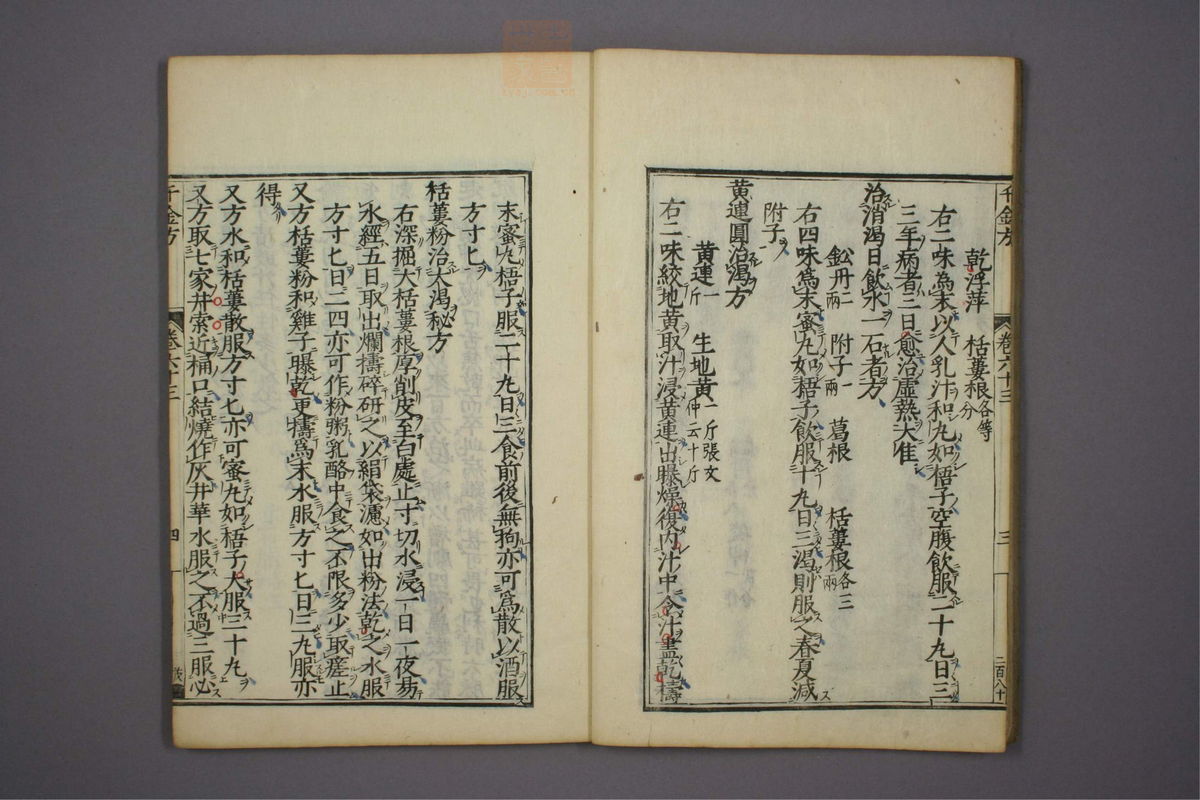 千金方 卷六十三 三
乾浮萍 栝蔞根各等分
右二味為末以人乳汁和丸如梧子空腹飲服二十九日三
三年病者三日愈治虛熱大佳
治消渴日飲水一石者方
鈆丹二兩 附子一兩 葛根 栝蔞根各三兩
右四味為末蜜丸如梧子飲服十九日三渴則服之春夏減
附子
黄連圓治渴方
黄連一斤 生地黄一斤張文仲云十斤
右二味絞地黄取汁浸黄連出曝燥復内汁中令汁盡乾擣
末蜜丸梧子服二十九日三食前後無拘亦可為散以酒服
方寸匕
栝蔞粉治大渴秘方
右深掘大栝蔞根厚削皮至白處止寸切水浸一日一夜易
水經五日取出爛擣碎研之以絹袋濾如出粉法乾之水服
方寸匕日三四亦可作粉粥乳酪中食之不限多少取瘥止
又方栝蔞粉和雞子曝乾更擣為末水服方寸匕日三丸服亦
得
又方水和栝蔞散服方寸匕亦可蜜丸如梧子大服三十九
又方取七家井索近桶口結燒作灰井華水服之不過三服必
千金方 卷六十三 四